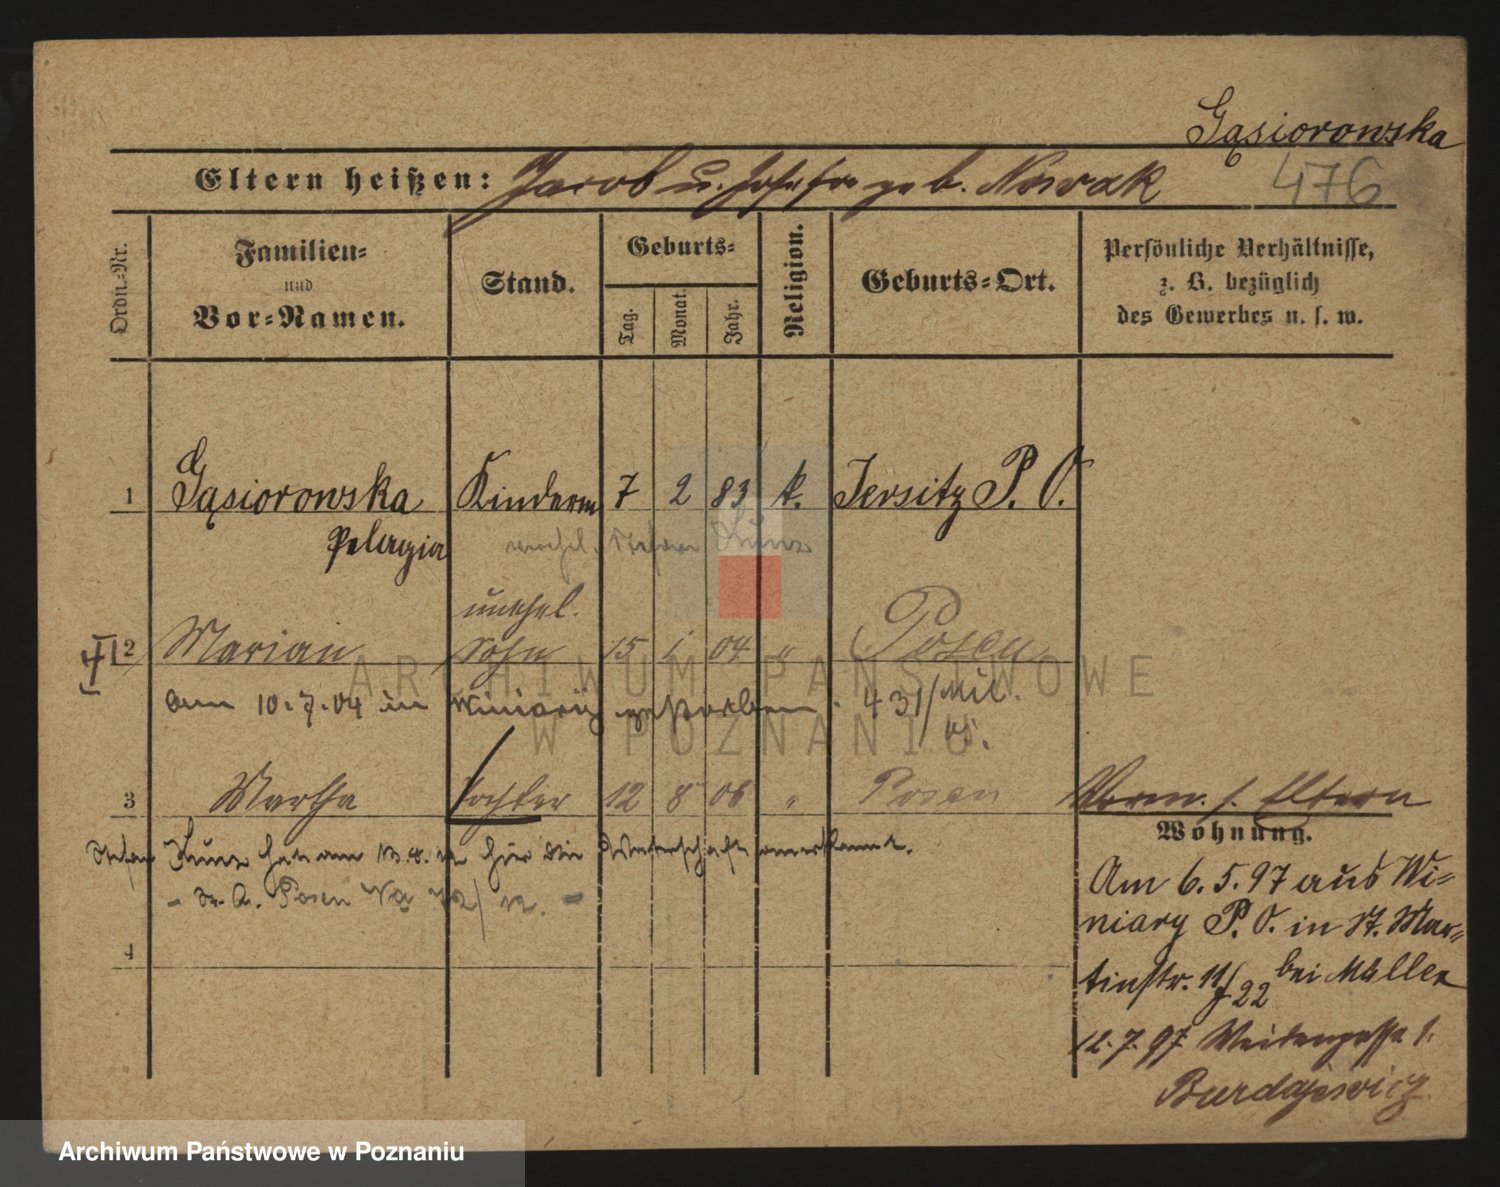 Gąsiorowska
476
Eltern heißen: Jacob u. Josefa geb. Nowak
Ordn.-Nr.
Familien-
und
Vor-Namen.
Stand.
Geburts-
Tag.
Monat.
Jahr.
Religion.
Geburts-Ort.
Persönliche Verhältnisse,
z. B. bezüglich
des Gewerbes u. s. w.
1 Gąsiorowska Kinderm 7 2 83 k. Jersitz P. O.
Pelagia
Stefan Kunz
unehel.
2 Marian Sohn 15 1 04 " Posen
am 10.7.04 in Winiary gestorben. 431/Mil.
3 Martha Tochter 12 8 06 " Posen
Verm. s. Eltern
Stefan Kunz hat am für die Vaterschaft anerkannt.
St. A. Posen 72/12. -
4
Wohnung.
Am 6.5.97 aus Wi-
niary P. O. in St. Mar-
tinstr. 11/22 bei Müller
12.7.97 Weidengasse 1.
Burdajewicz
ARCHIWUM PAŃSTWOWE
W POZNANIU
Archiwum Państwowe w Poznaniu